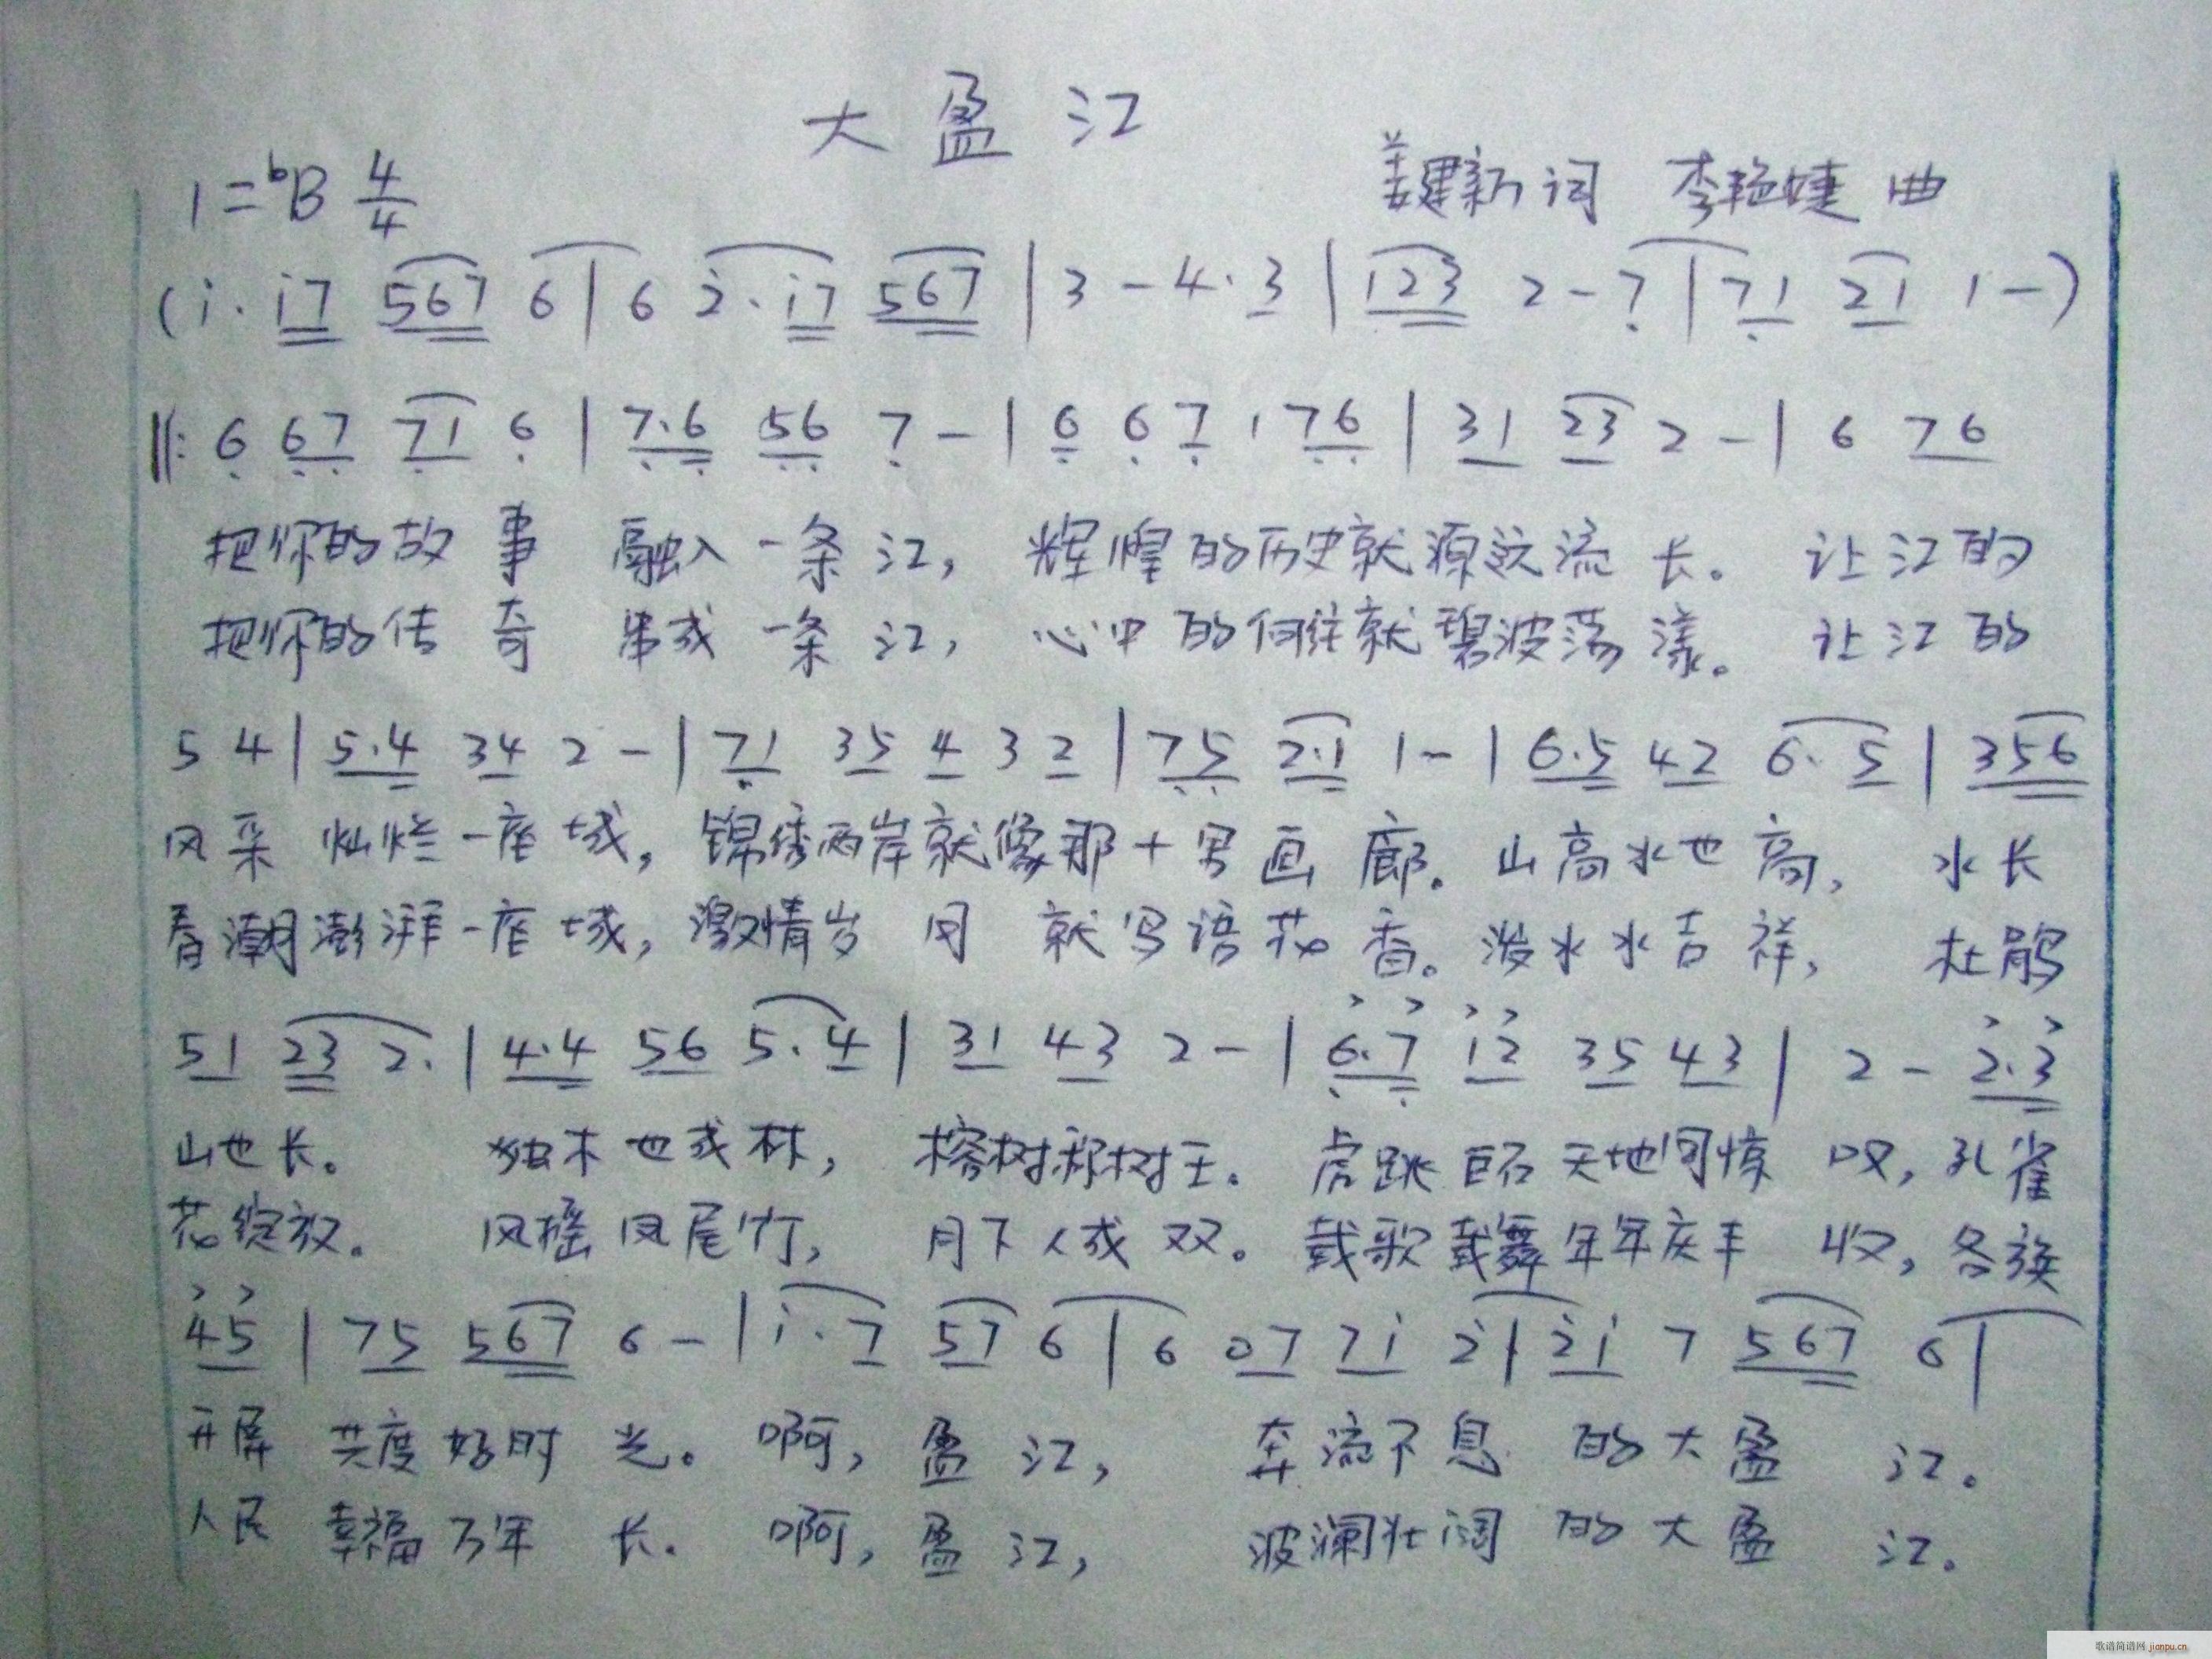 大盈江
1=ᵇB 4/4
姜建新 词 李艳婕 曲
(i· i7 567 6 | 6 2· i7 567 | 3 - 4·3 | 123 2 - 7 | 71 21 1 -)
‖: 6 67 71 6 | 7·6 56 7 - | 6 6 7 1 76 | 31 23 2 - | 6 76
把你的故事 融入一条江, 辉煌的历史就源远流长。 让江的
把你的传奇 串成一条江, 心中的向往就碧波荡漾。 让江的
5 4 | 5·4 34 2 - | 71 35 4 3 2 | 75 2·1 1 - | 6·5 42 6· 5 | 356
风采 灿烂一座城, 锦绣两岸就像那十里画廊。山高水也高, 水长
春潮澎湃一座城, 激情岁月 就鸟语花香。泼水水吉祥, 杜鹃
51 23 2· | 4·4 56 5·4 | 31 43 2 - | 6·7 12 35 43 | 2 - 2·3
山也长。 独木也成林, 榕树称树王。虎跳巨石天地间惊叹, 孔雀
花绽放。 风摇凤尾竹, 月下人成双。载歌载舞年年庆丰收, 各族
45 | 75 567 6 - | i· 7 57 6 | 6 07 7i 2 | 2i 7 567 6 |
开屏 共度好时光。啊, 盈江, 奔流不息 的大盈江。
人民 幸福万年长。啊, 盈江, 波澜壮阔 的大盈江。
歌谱简谱网 jianpu.cn